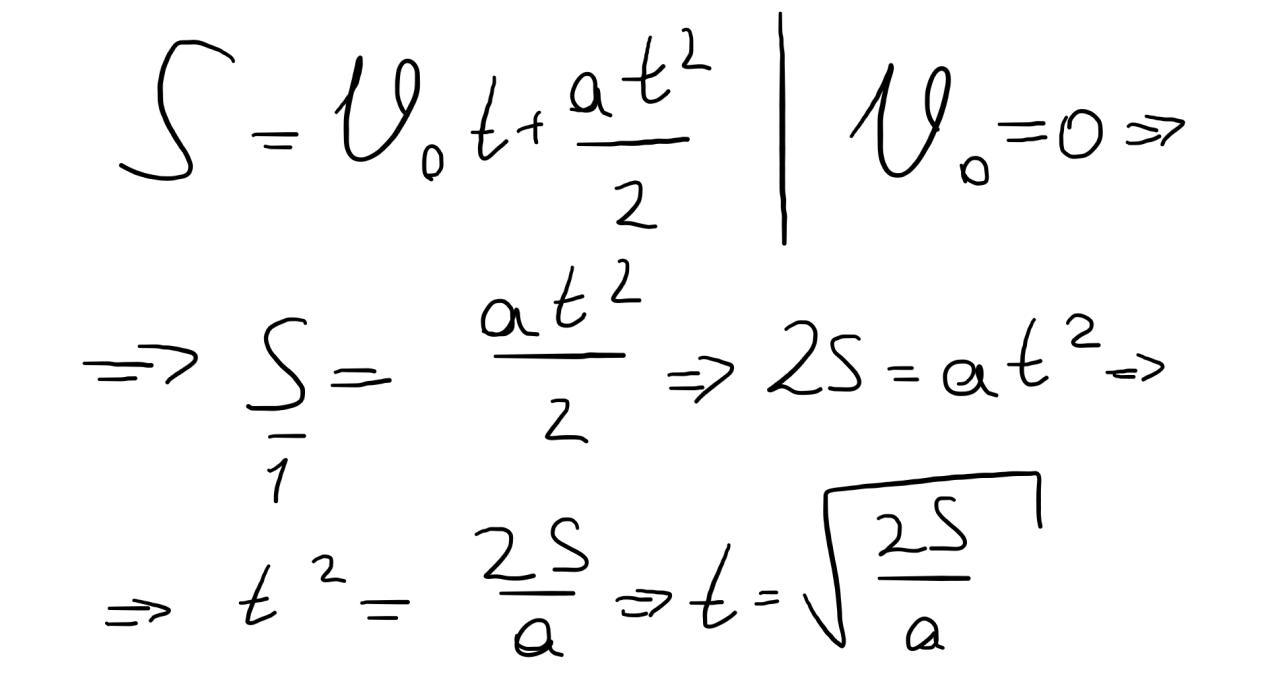 S = v₀ t + at²/2 | v₀ = 0 ⇒
⇒ S/1 = at²/2 ⇒ 2S = at² ⇒
⇒ t² = 2S/a ⇒ t = √(2S/a)